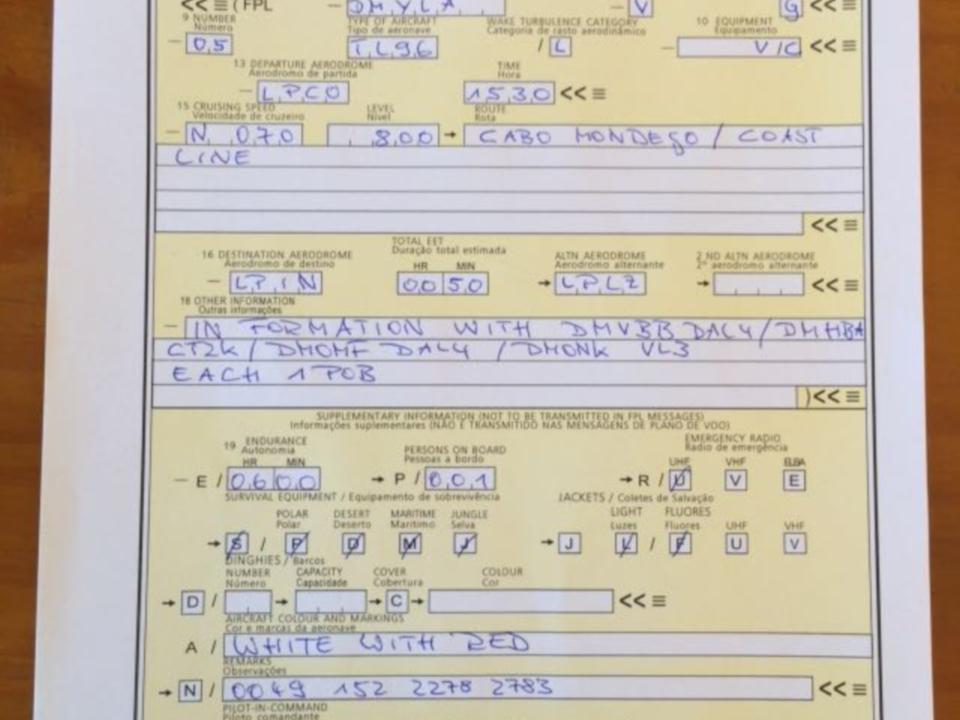 << ≡ (FPL – DMYLA – V G << ≡
9 NUMBER TYPE OF AIRCRAFT WAKE TURBULENCE CATEGORY 10 EQUIPMENT
Número Tipo de aeronave Categoria de rasto aerodinâmico Equipamento
– 05 TL96 / L – V/C << ≡
13 DEPARTURE AERODROME TIME
Aerodromo de partida Hora
– LPCO 1530 << ≡
15 CRUISING SPEED LEVEL ROUTE
Velocidade de cruzeiro Nivel Rota
– N 070 800 → CABO MONDEGO / COAST
LINE
<< ≡
TOTAL EET
16 DESTINATION AERODROME Duração total estimada ALTN AERODROME 2 ND ALTN AERODROME
Aerodromo de destino HR MIN Aerodromo alternante 2º aerodromo alternante
– LPIN 0050 → LPLZ → << ≡
18 OTHER INFORMATION
Outras informações
– IN FORMATION WITH DMVBB DAL4/DMHBA
CT2K/DMOMF DAL4 /DMONK VL3
EACH 1 POB
)<< ≡
SUPPLEMENTARY INFORMATION (NOT TO BE TRANSMITTED IN FPL MESSAGES)
Informações suplementares (NÃO É TRANSMITIDO NAS MENSAGENS DE PLANO DE VOO)
19 ENDURANCE EMERGENCY RADIO
Autonomia PERSONS ON BOARD Radio de emergência
HR MIN Pessoas a bordo UHF VHF ELBA
– E / 0600 → P / 001 → R / U V E
SURVIVAL EQUIPMENT / Equipamento de sobrevivência JACKETS / Coletes de Salvação
POLAR DESERT MARITIME JUNGLE LIGHT FLUORES
Polar Deserto Maritimo Selva Luzes Fluores UHF VHF
→ S / P D M J → J L / F U V
DINGHIES / Barcos
NUMBER CAPACITY COVER COLOUR
Número Capacidade Cobertura Cor
→ D / → → C → << ≡
AIRCRAFT COLOUR AND MARKINGS
Cor e marcas da aeronave
A / WHITE WITH RED
REMARKS
Observações
→ N / 0049 152 2278 2783 << ≡
PILOT-IN-COMMAND
Piloto comandante